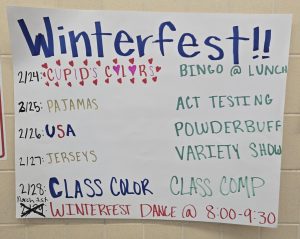 Winterfest!!
2/24: CUPID'S COLORS BINGO @ LUNCH
2/25: PAJAMAS ACT TESTING
2/26: USA POWDERBUFF
2/27: JERSEYS VARIETY SHOW
2/28: CLASS COLOR CLASS COMP
March 1st
WINTERFEST DANCE @ 8:00-9:30